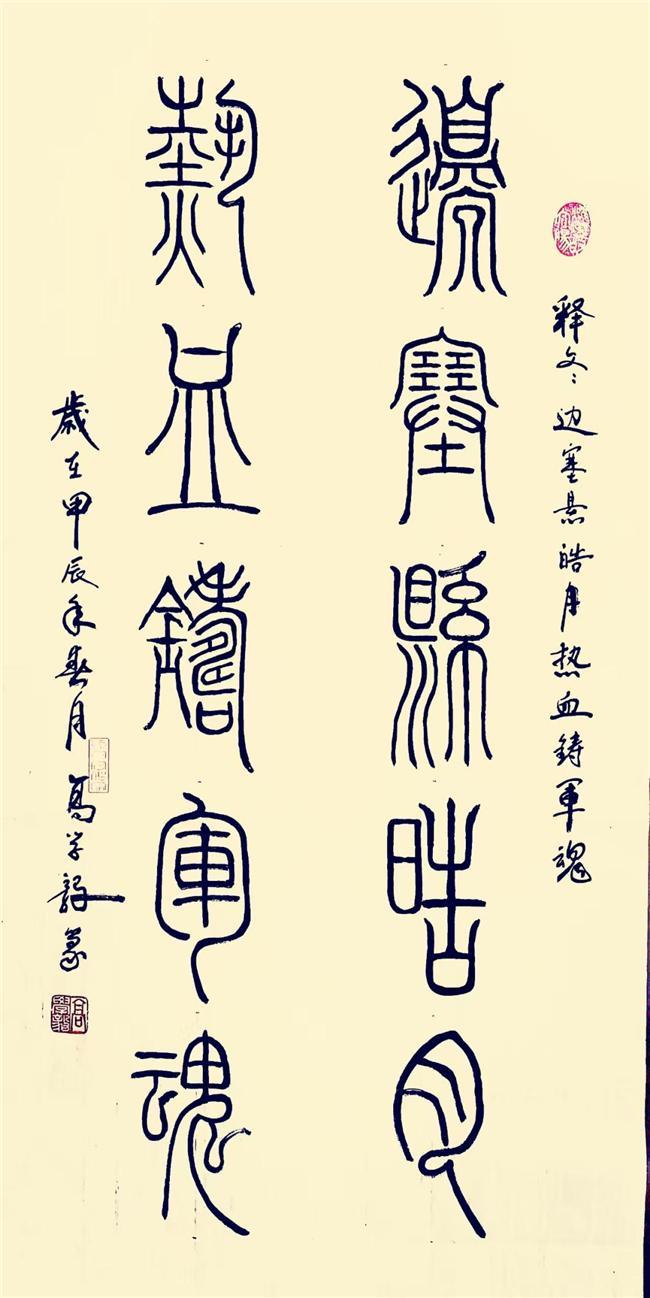 释文：边塞悬皓月热血铸军魂
邊塞縣晧月
熱血鑄軍魂
歲在甲辰年春月高学篆